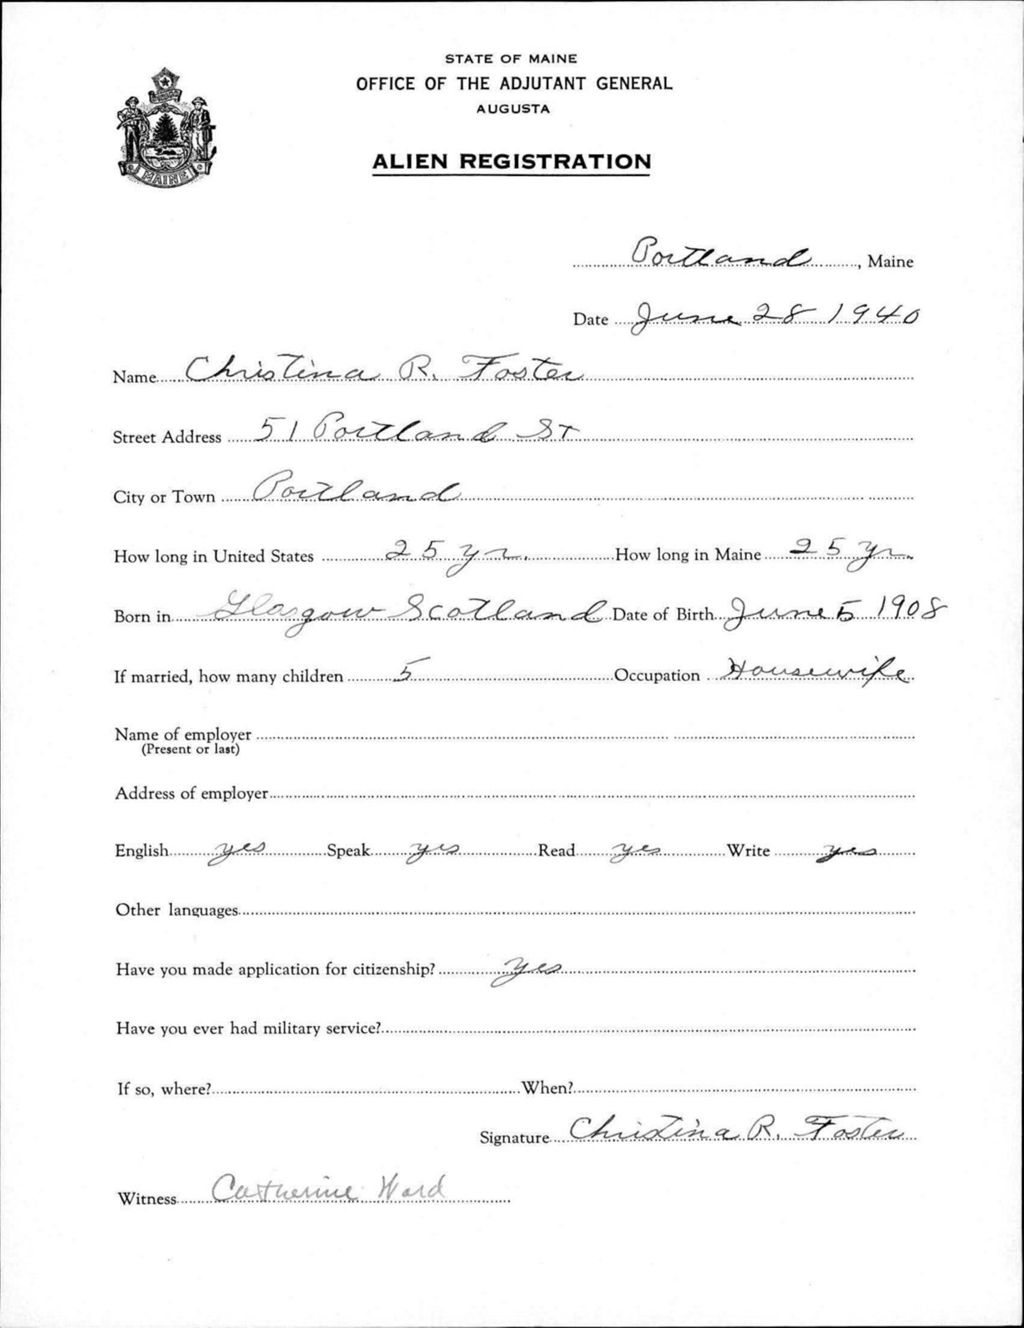 STATE OF MAINE
OFFICE OF THE ADJUTANT GENERAL
AUGUSTA
ALIEN REGISTRATION
MAINE
Portland, Maine
Date June 28 1940
Name Christina R. Foster
Street Address 51 Portland St
City or Town Portland
How long in United States 25 yr. How long in Maine 25 yr.
Born in Glasgow Scotland Date of Birth June 5 1908
If married, how many children 5 Occupation Housewife
Name of employer
(Present or last)
Address of employer
English yes Speak yes Read yes Write yes
Other languages
Have you made application for citizenship? yes
Have you ever had military service?
If so, where? When?
Signature Christina R. Foster
Witness Catherine Ward